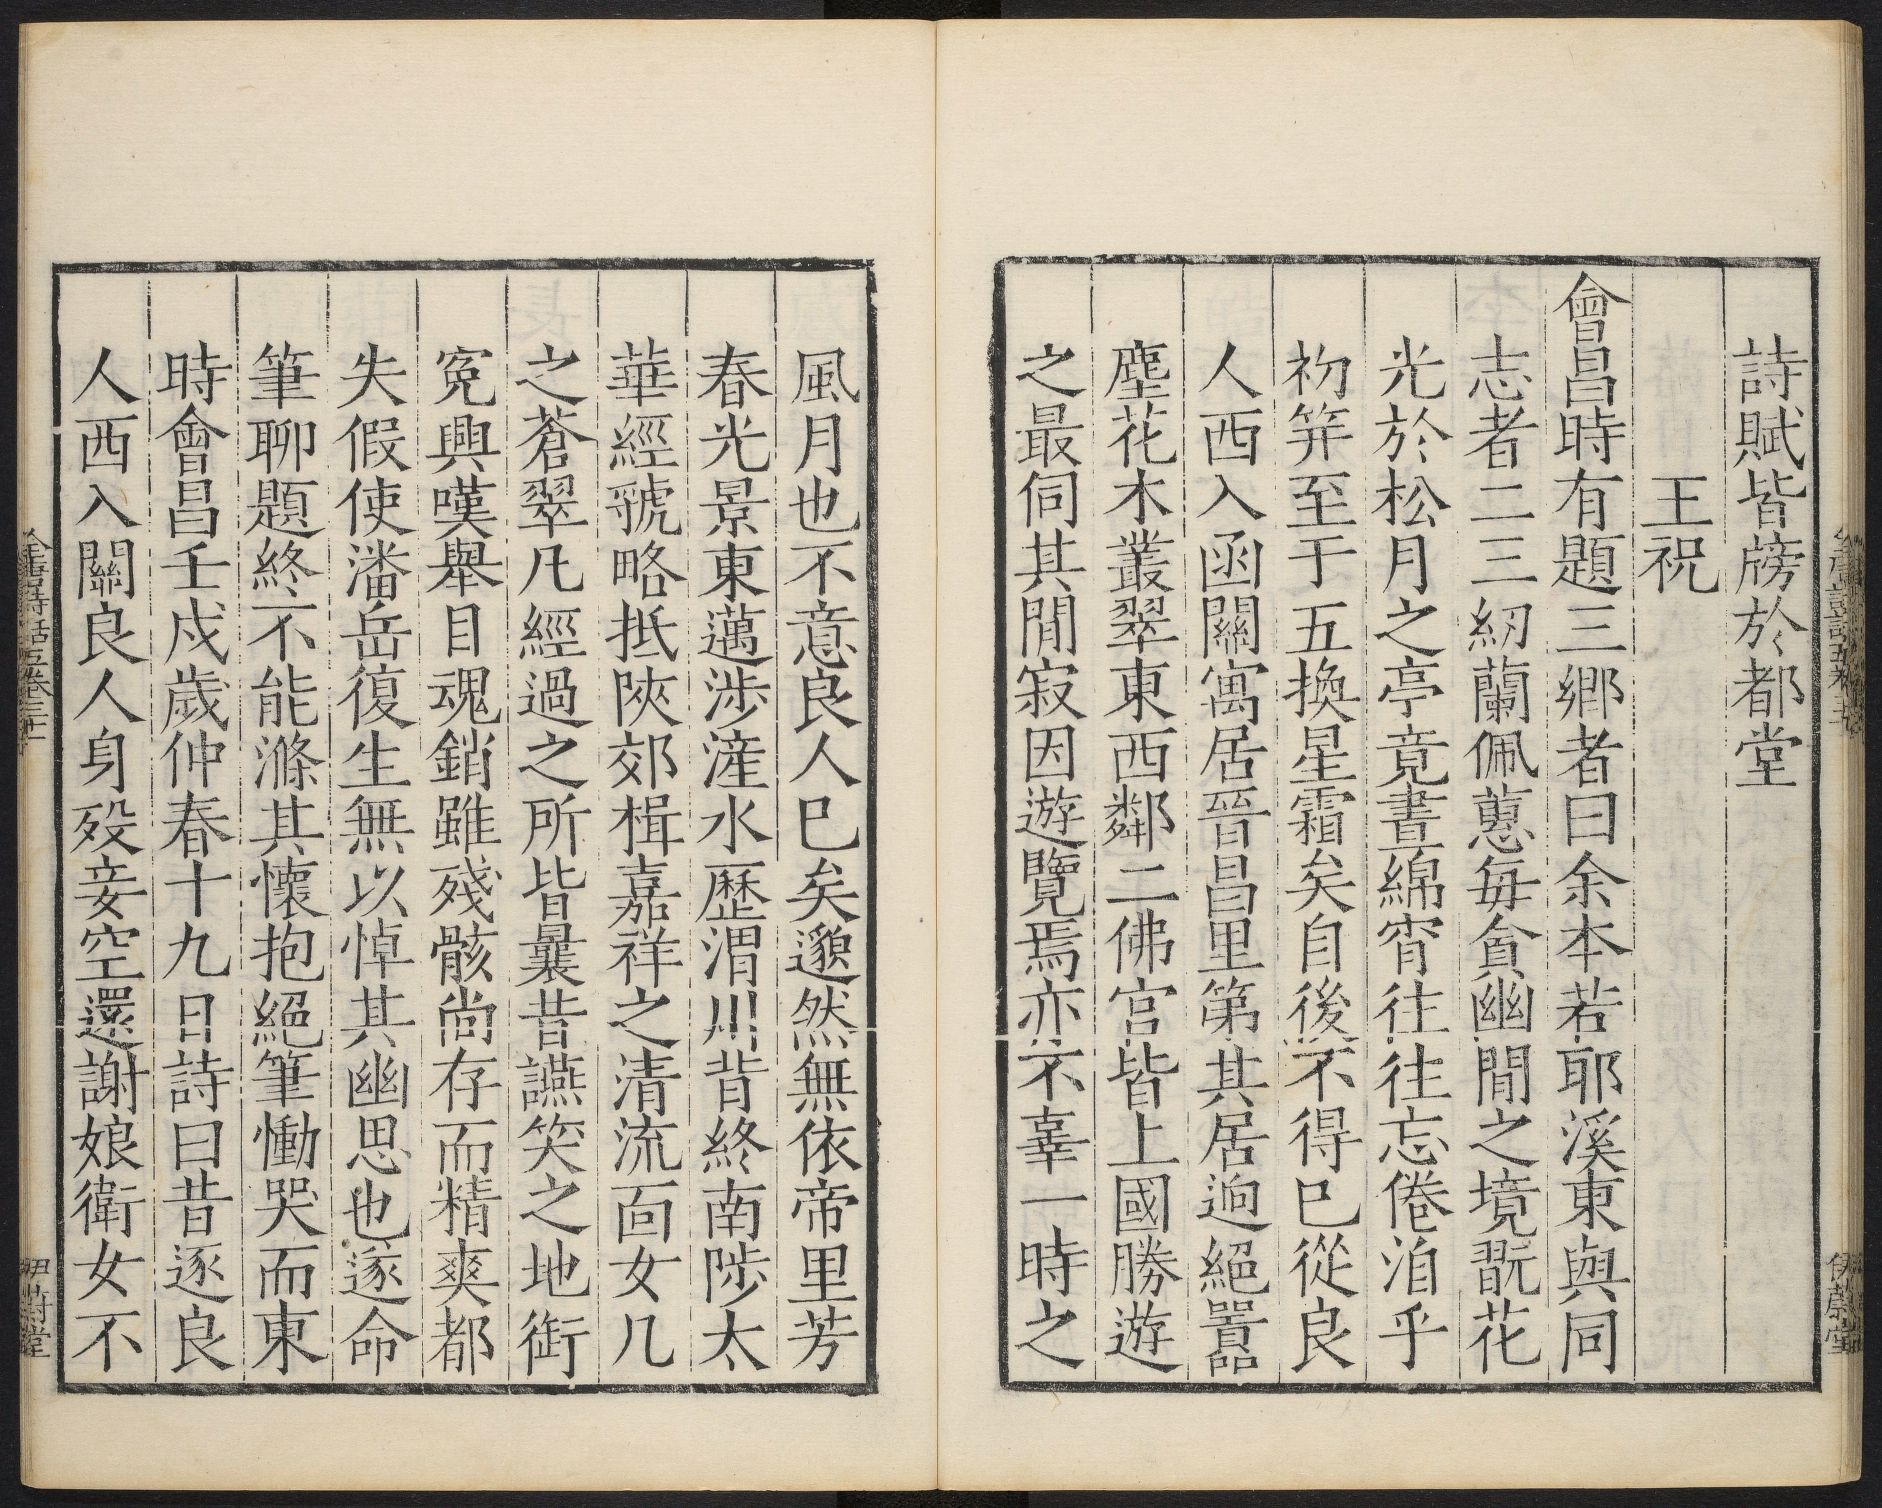 詩賦皆牓於都堂
王祝
會昌時有題三鄉者曰余本若耶溪東與同
志者二三紉蘭佩蕙每貪幽閒之境翫花
光於松月之亭竟晝綿宵往往忘倦洎乎
初笄至于五換星霜矣自後不得已從良
人西入函關寓居晉昌里第其居迥絕囂
塵花木叢翠東西鄰二佛宮皆上國勝遊
之最伺其閒寂因遊覽焉亦不辜一時之
風月也不意良人已矣邈然無依帝里芳
春光景東邁涉滻水歷渭川背終南陟太
華經虢略抵陝郊揖嘉祥之清流面女几
之蒼翠凡經過之所皆曩昔讌笑之地銜
寃興嘆舉目魂銷雖殘骸尚存而精爽都
失假使潘岳復生無以悼其幽思也遂命
筆聊題終不能滌其懷抱絕筆慟哭而東
時會昌壬戌歲仲春十九日詩曰昔逐良
人西入關良人身歿妾空還謝娘衛女不